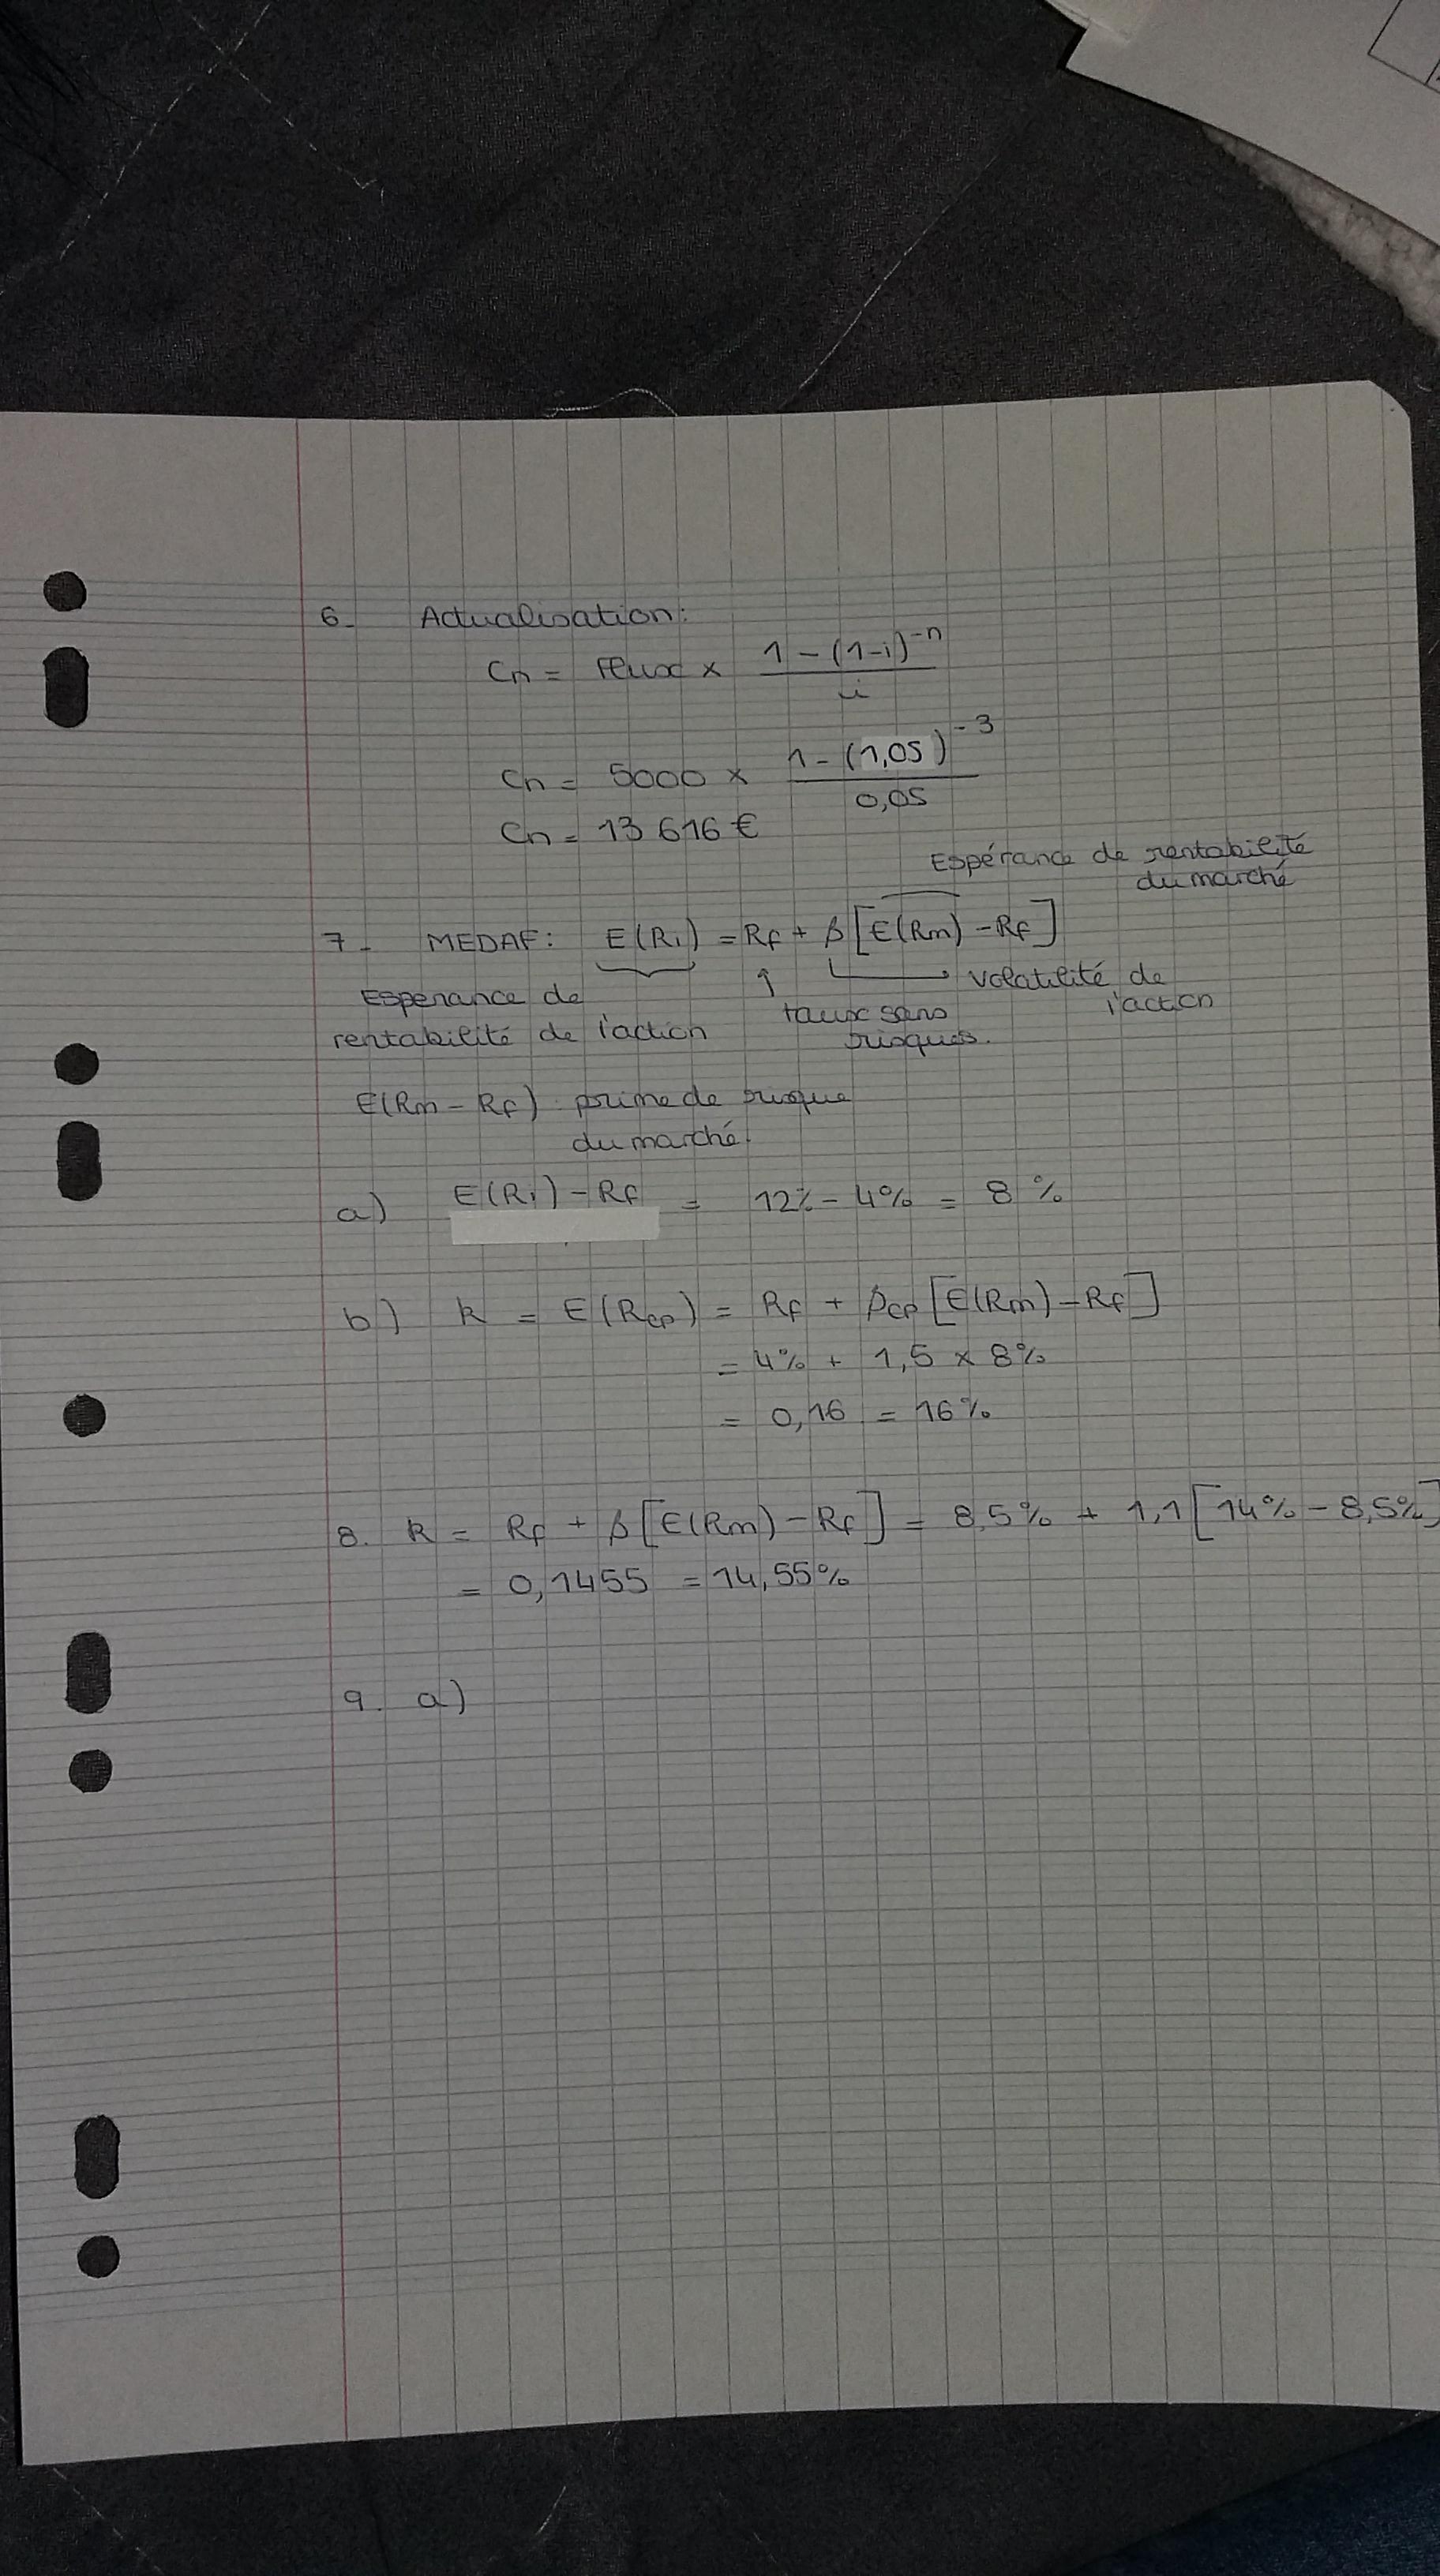 6- Actualisation:
Cn = Flux × 1 - (1-i)^-n / i
Cn = 5000 × 1 - (1,05)^-3 / 0,05
Cn = 13 616 €
Espérance de rentabilité
du marché
7- MEDAF: E(Ri) = Rf + β[E(Rm) - Rf]
Esperance de
rentabilité de l'action
taux sans
risques.
volatilité de
l'action
E(Rm - Rf) : prime de risque
du marché.
a) E(Ri) - Rf = 12% - 4% = 8 %
b) k = E(Rcp) = Rf + βcp [E(Rm) - Rf]
= 4% + 1,5 × 8%
= 0,16 = 16%
8. k = Rf + β[E(Rm) - Rf] = 8,5% + 1,1[14% - 8,5%]
= 0,1455 = 14,55%
9. a)